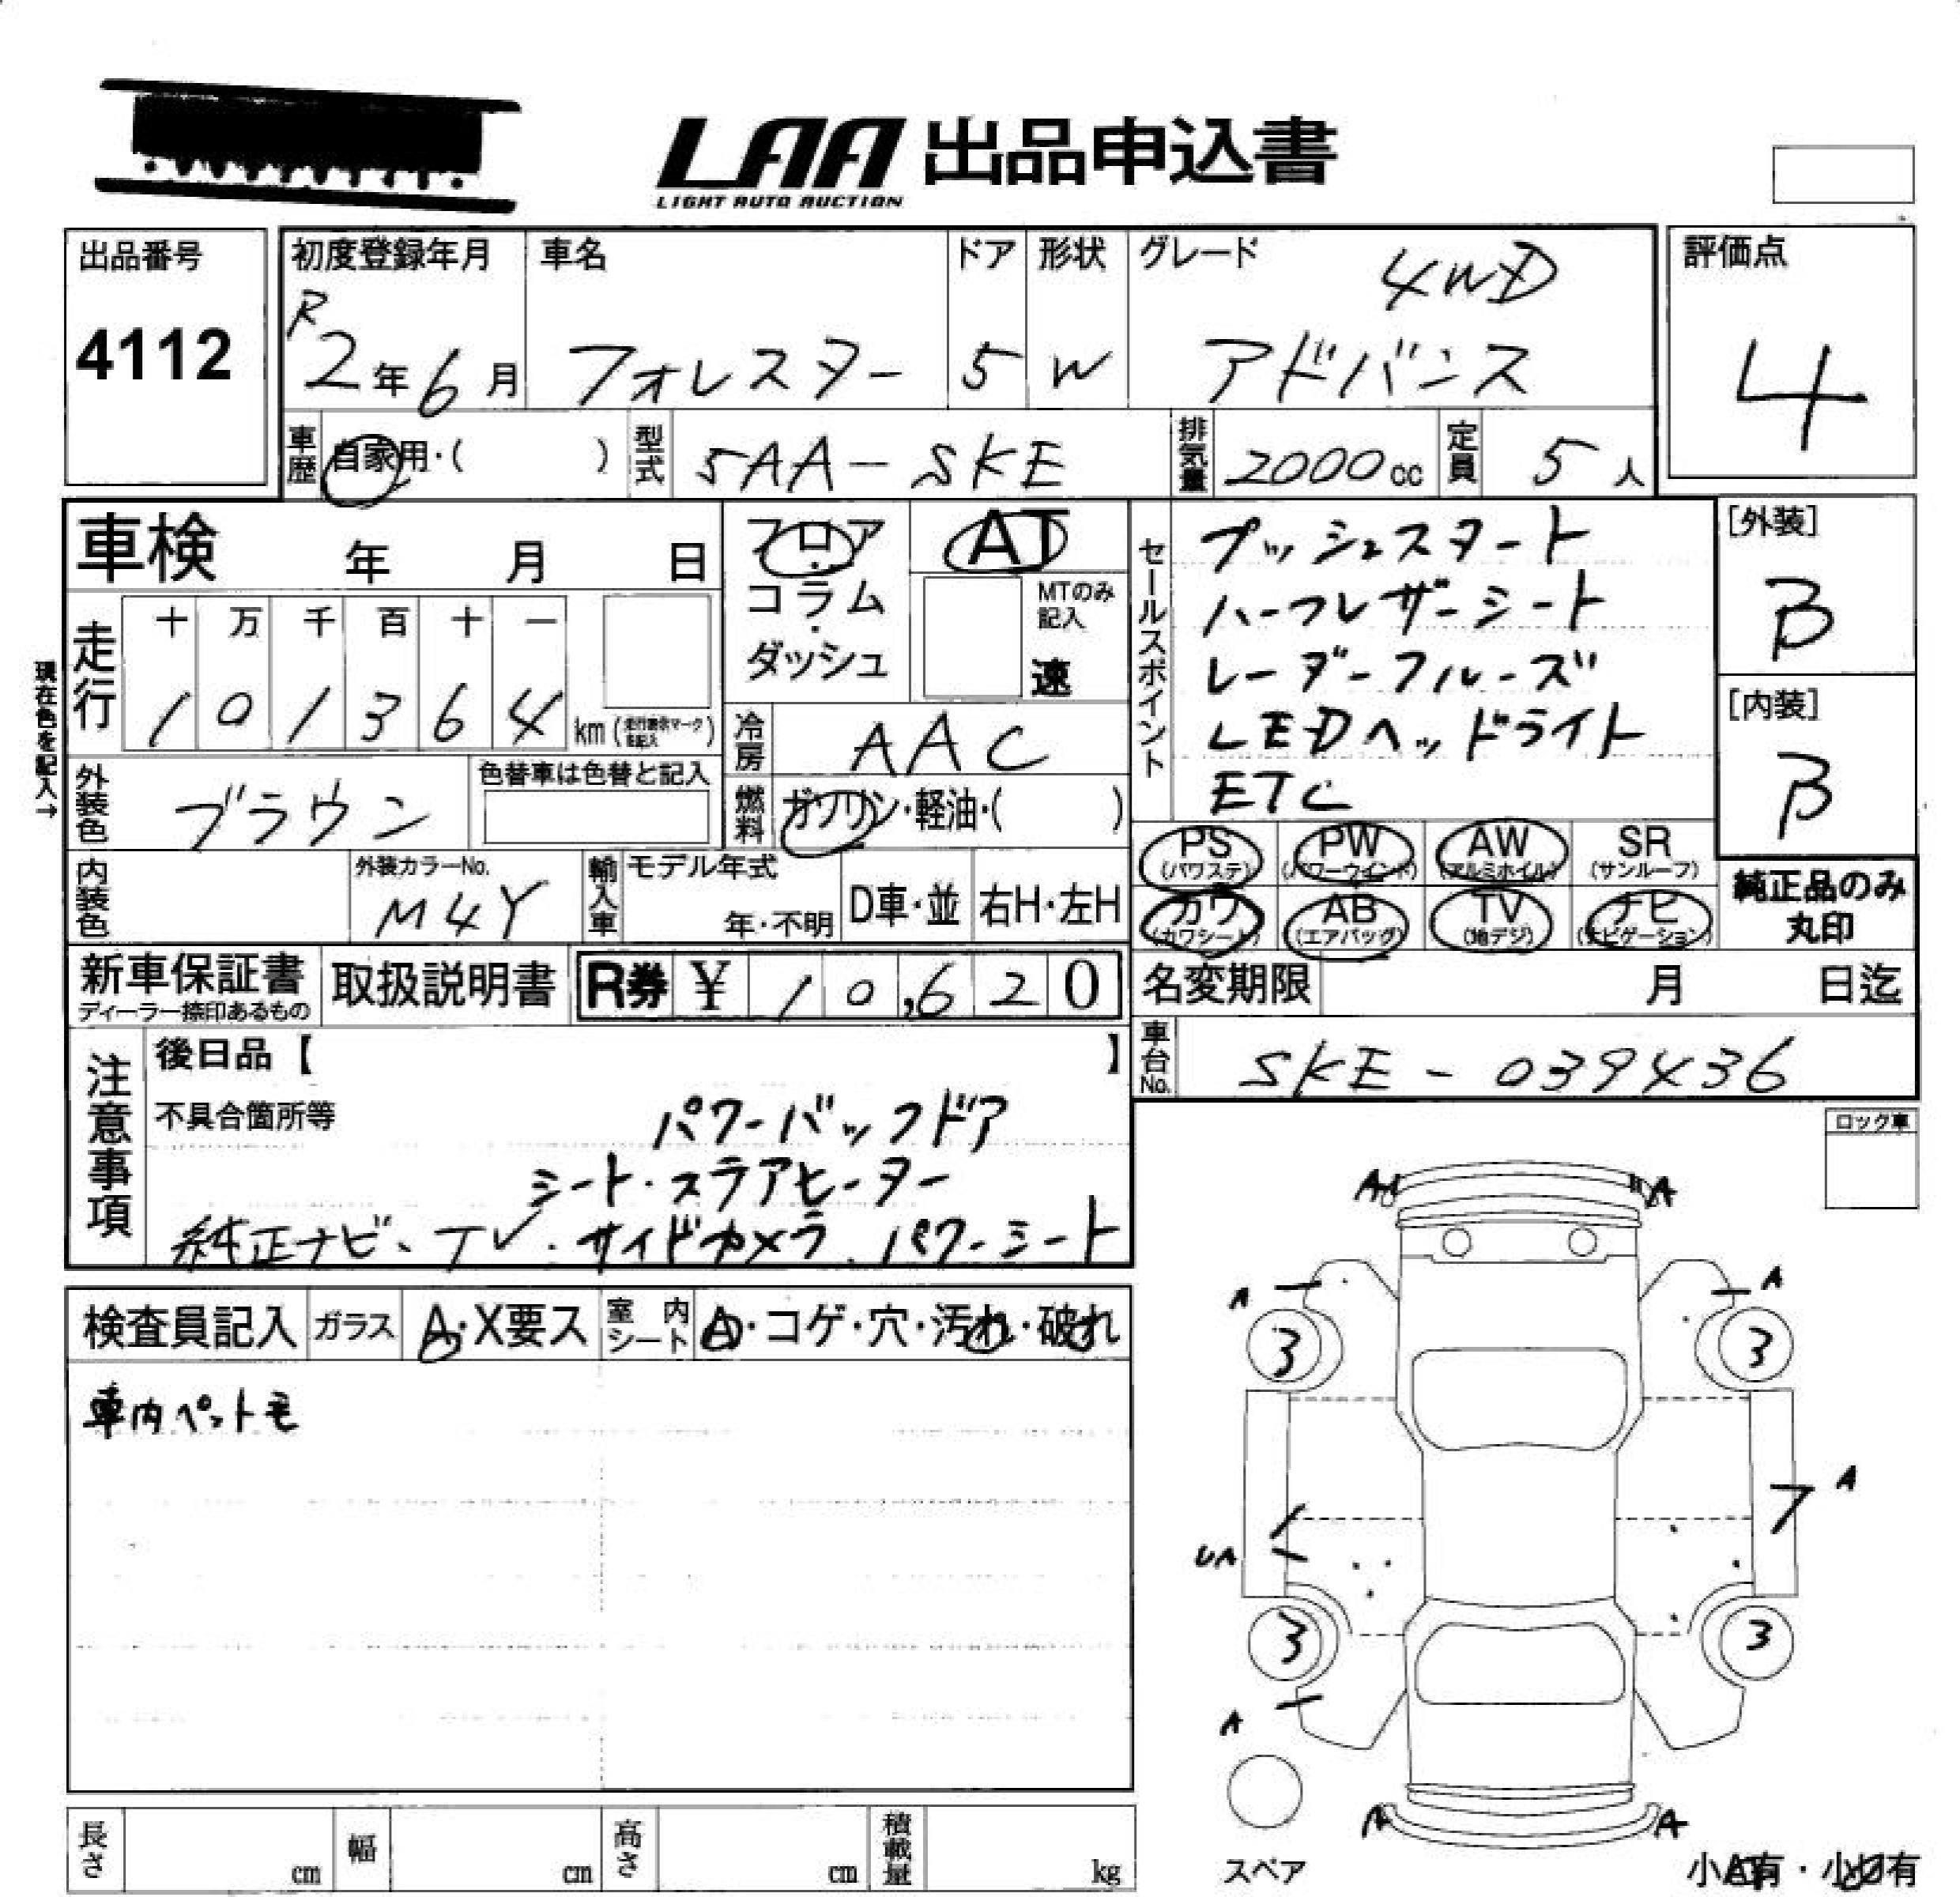 LAA 出品申込書
LIGHT AUTO AUCTION
出品番号
4112
初度登録年月
R
2年6月
車名
フォレスター
ドア
5
形状
W
グレード
4WD
アドバンス
評価点
4
車歴
自家用・( )
型式
5AA-SKE
排気量
2000cc
定員
5人
車検 年 月 日
フロア
・
コラム
・
ダッシュ
AT
MTのみ
記入
速
セールスポイント
プッシュスタート
ハーフレザーシート
レーダークルーズ
LEDヘッドライト
ETC
[外装]
B
[内装]
B
現在色を記入→
走行
十 万 千 百 十 一
1 0 1 3 6 4
km ( )
冷房
AAC
外装色
ブラウン
色替車は色替と記入
燃料
ガソリン・軽油・( )
内装色
外装カラーNo.
M4Y
輸入車
モデル年式
年・不明
D車・並
右H・左H
PS
(パワステ)
PW
(パワーウインド)
AW
(アルミホイル)
SR
(サンルーフ)
カワ
(カワシート)
AB
(エアバッグ)
TV
(地デジ)
ナビ
(ナビゲーション)
純正品のみ
丸印
新車保証書
ディーラー捺印あるもの
取扱説明書
R券 ¥ 10,620
名変期限 月 日迄
車台No.
SKE-039436
注意事項
後日品【 】
不具合箇所等
パワーバックドア
シート・ステアヒーター
純正ナビ、TV・サイドカメラ、パワーシート
ロック車
検査員記入
ガラス
A・X要ス
室内
シート
A・コゲ・穴・汚れ・破れ
車内ペット毛
A A
A A
3 3
A
UA
3 3
A
A A
スペア
小A有・小U有
長さ cm
幅 cm
高さ cm
積載量 kg